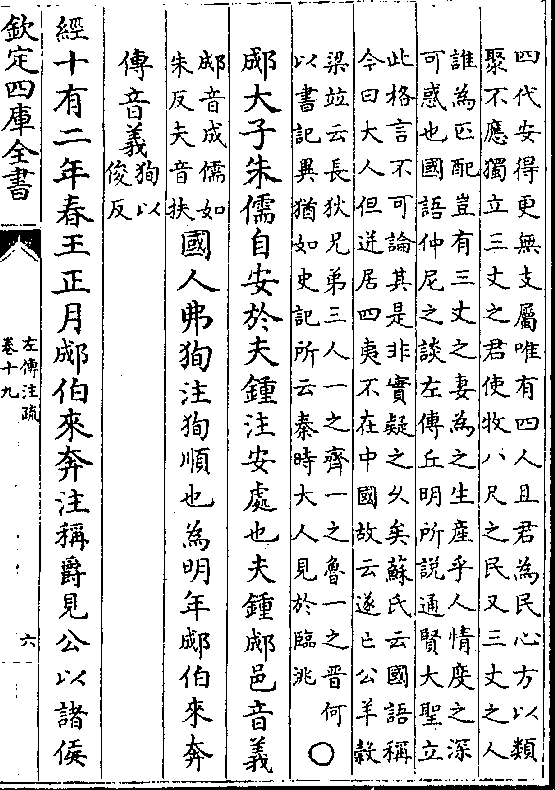 四代安得更無支屬唯有四人且君為民心方以類
聚不應獨立三丈之君使牧八尺之民又三丈之人
誰為匹配豈有三丈之妻為之生產乎人情度之深
可惑也國語仲尼之談左傳丘明所説通賢大聖立
此格言不可論其是非實疑之乆矣蘇氏云國語稱
今曰大人但迸居四夷不在中國故云遂亡公羊榖
梁竝云長狄兄弟三人一之齊一之魯一之晉何
以書記異猶如史記所云秦時大人見於臨洮〇
郕大子朱儒自安於夫鍾注安處也夫鍾郕邑音義
郕音成儒如
朱反夫音扶
國人弗狥注狥順也為明年郕伯來奔
傳音義
狥以
俊反
經十有二年春王正月郕伯來奔注稱爵見公以諸侯
欽定四庫全書
左傳注疏
卷十九
六